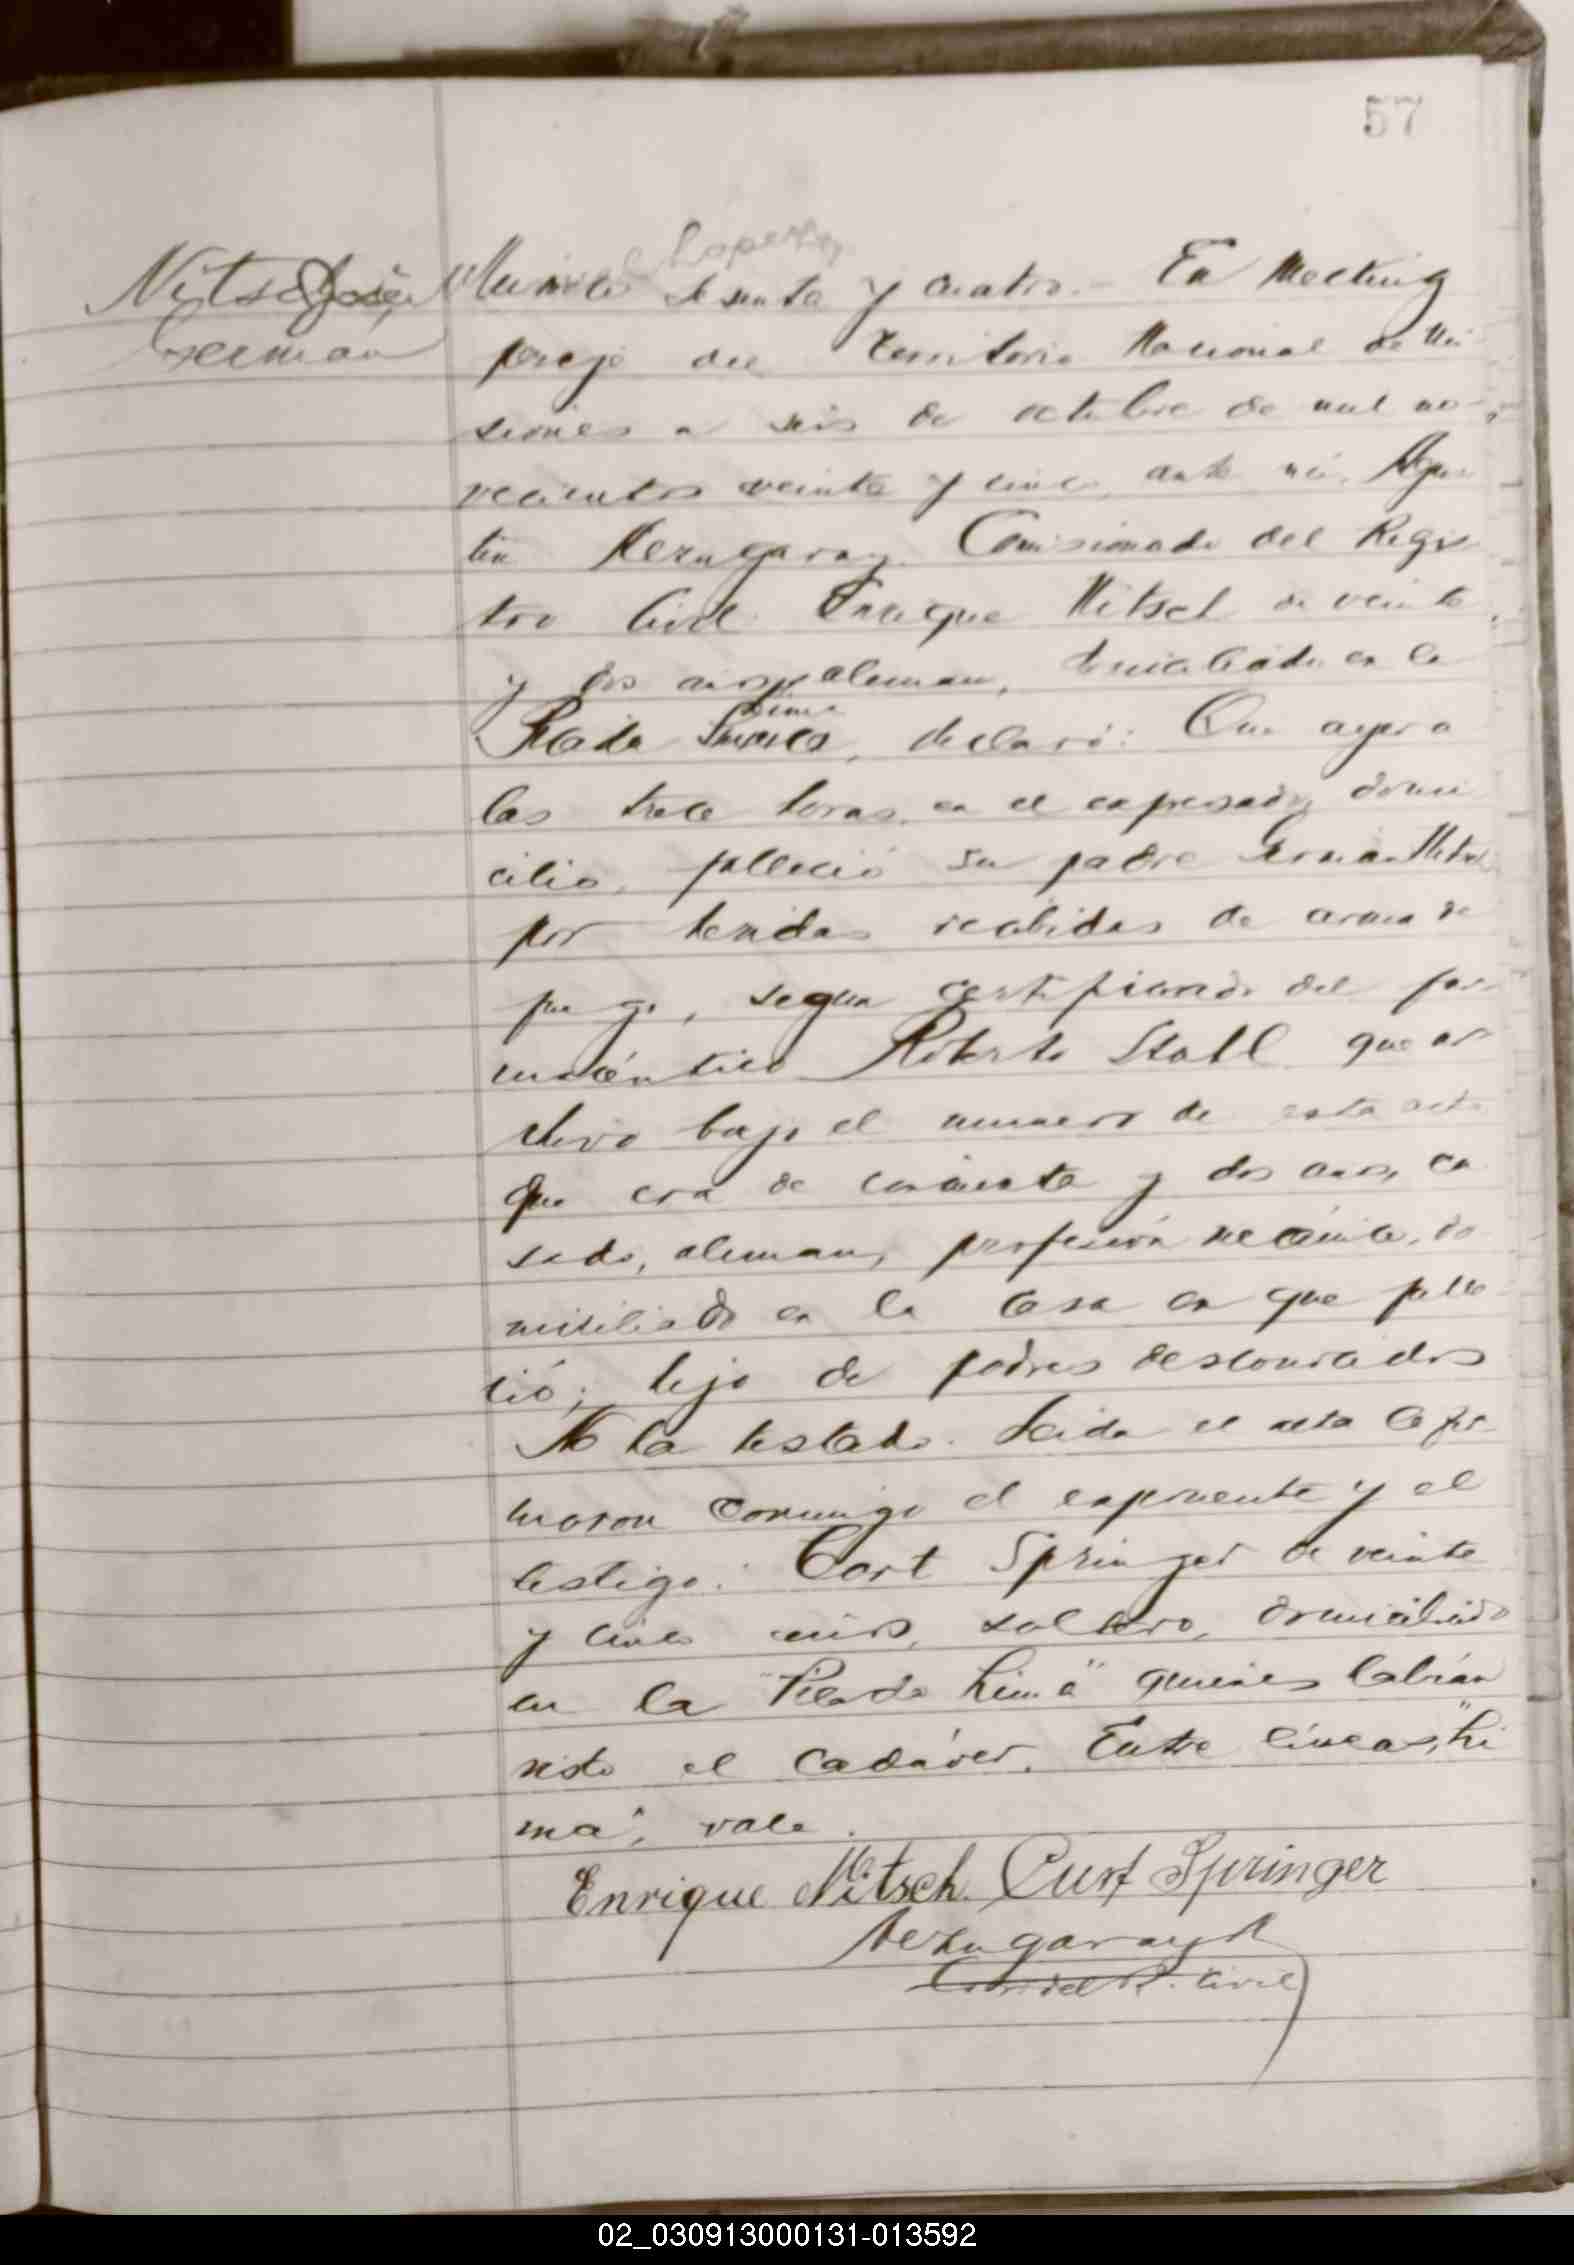 57
Nitsch
Germán
Número sesenta y cuatro.- En Mecking
paraje del Territorio Nacional de Mi-
siones a seis de octubre de mil no-
vecientos veinte y cinco, ante mí, Agus-
tín Verzugaray Comisionado del Regis-
tro Civil Enrique Nitsch de veinte
y dos años, aleman, domiciliado en la
Picada, declaró: Que ayer a
las trece horas, en el expresado domi
cilio, falleció su padre German Nitsch
por heridas recibidas de arma de
fuego, segun certificado del far-
macéutico Roberto Stahl que ar-
chivo bajo el numero de esta acta
Que era de cincuenta y dos años, ca
sado, aleman, profesión mecánico, do
miciliado en la casa en que falle
ció; hijo de padres desconocidos
No ha testado. Leida el acta la fir-
maron conmigo el exponente y el
testigo: Cort Springer de veinte
y cinco años, soltero, domiciliado
en la "Picada Limá" quienes habian
visto el cadáver. Entre líneas, "Li
má", vale.
Enrique Nitsch. Curt Springer
R. Civil
02_030913000131-013592